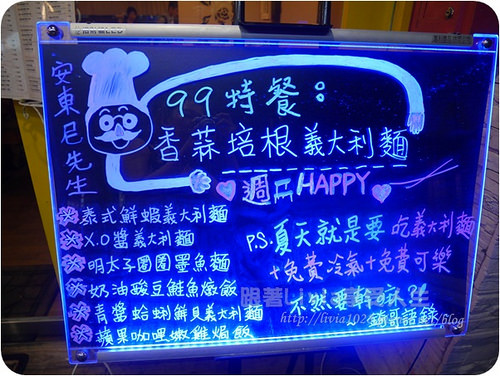 安東尼先生
99特餐:
香蒜培根義大利麵
週二HAPPY
泰式鮮蝦義大利麵
X.O醬義大利麵
明太子圈圈墨魚麵
奶油酸豆鮭魚燉飯
青醬蛤蜊鮮貝義大利麵
蘋果咖哩嫩雞焗飯
P.S.夏天就是要吃義大利麵
+免費冷氣+免費可樂
不然要幹嘛?!
語錄